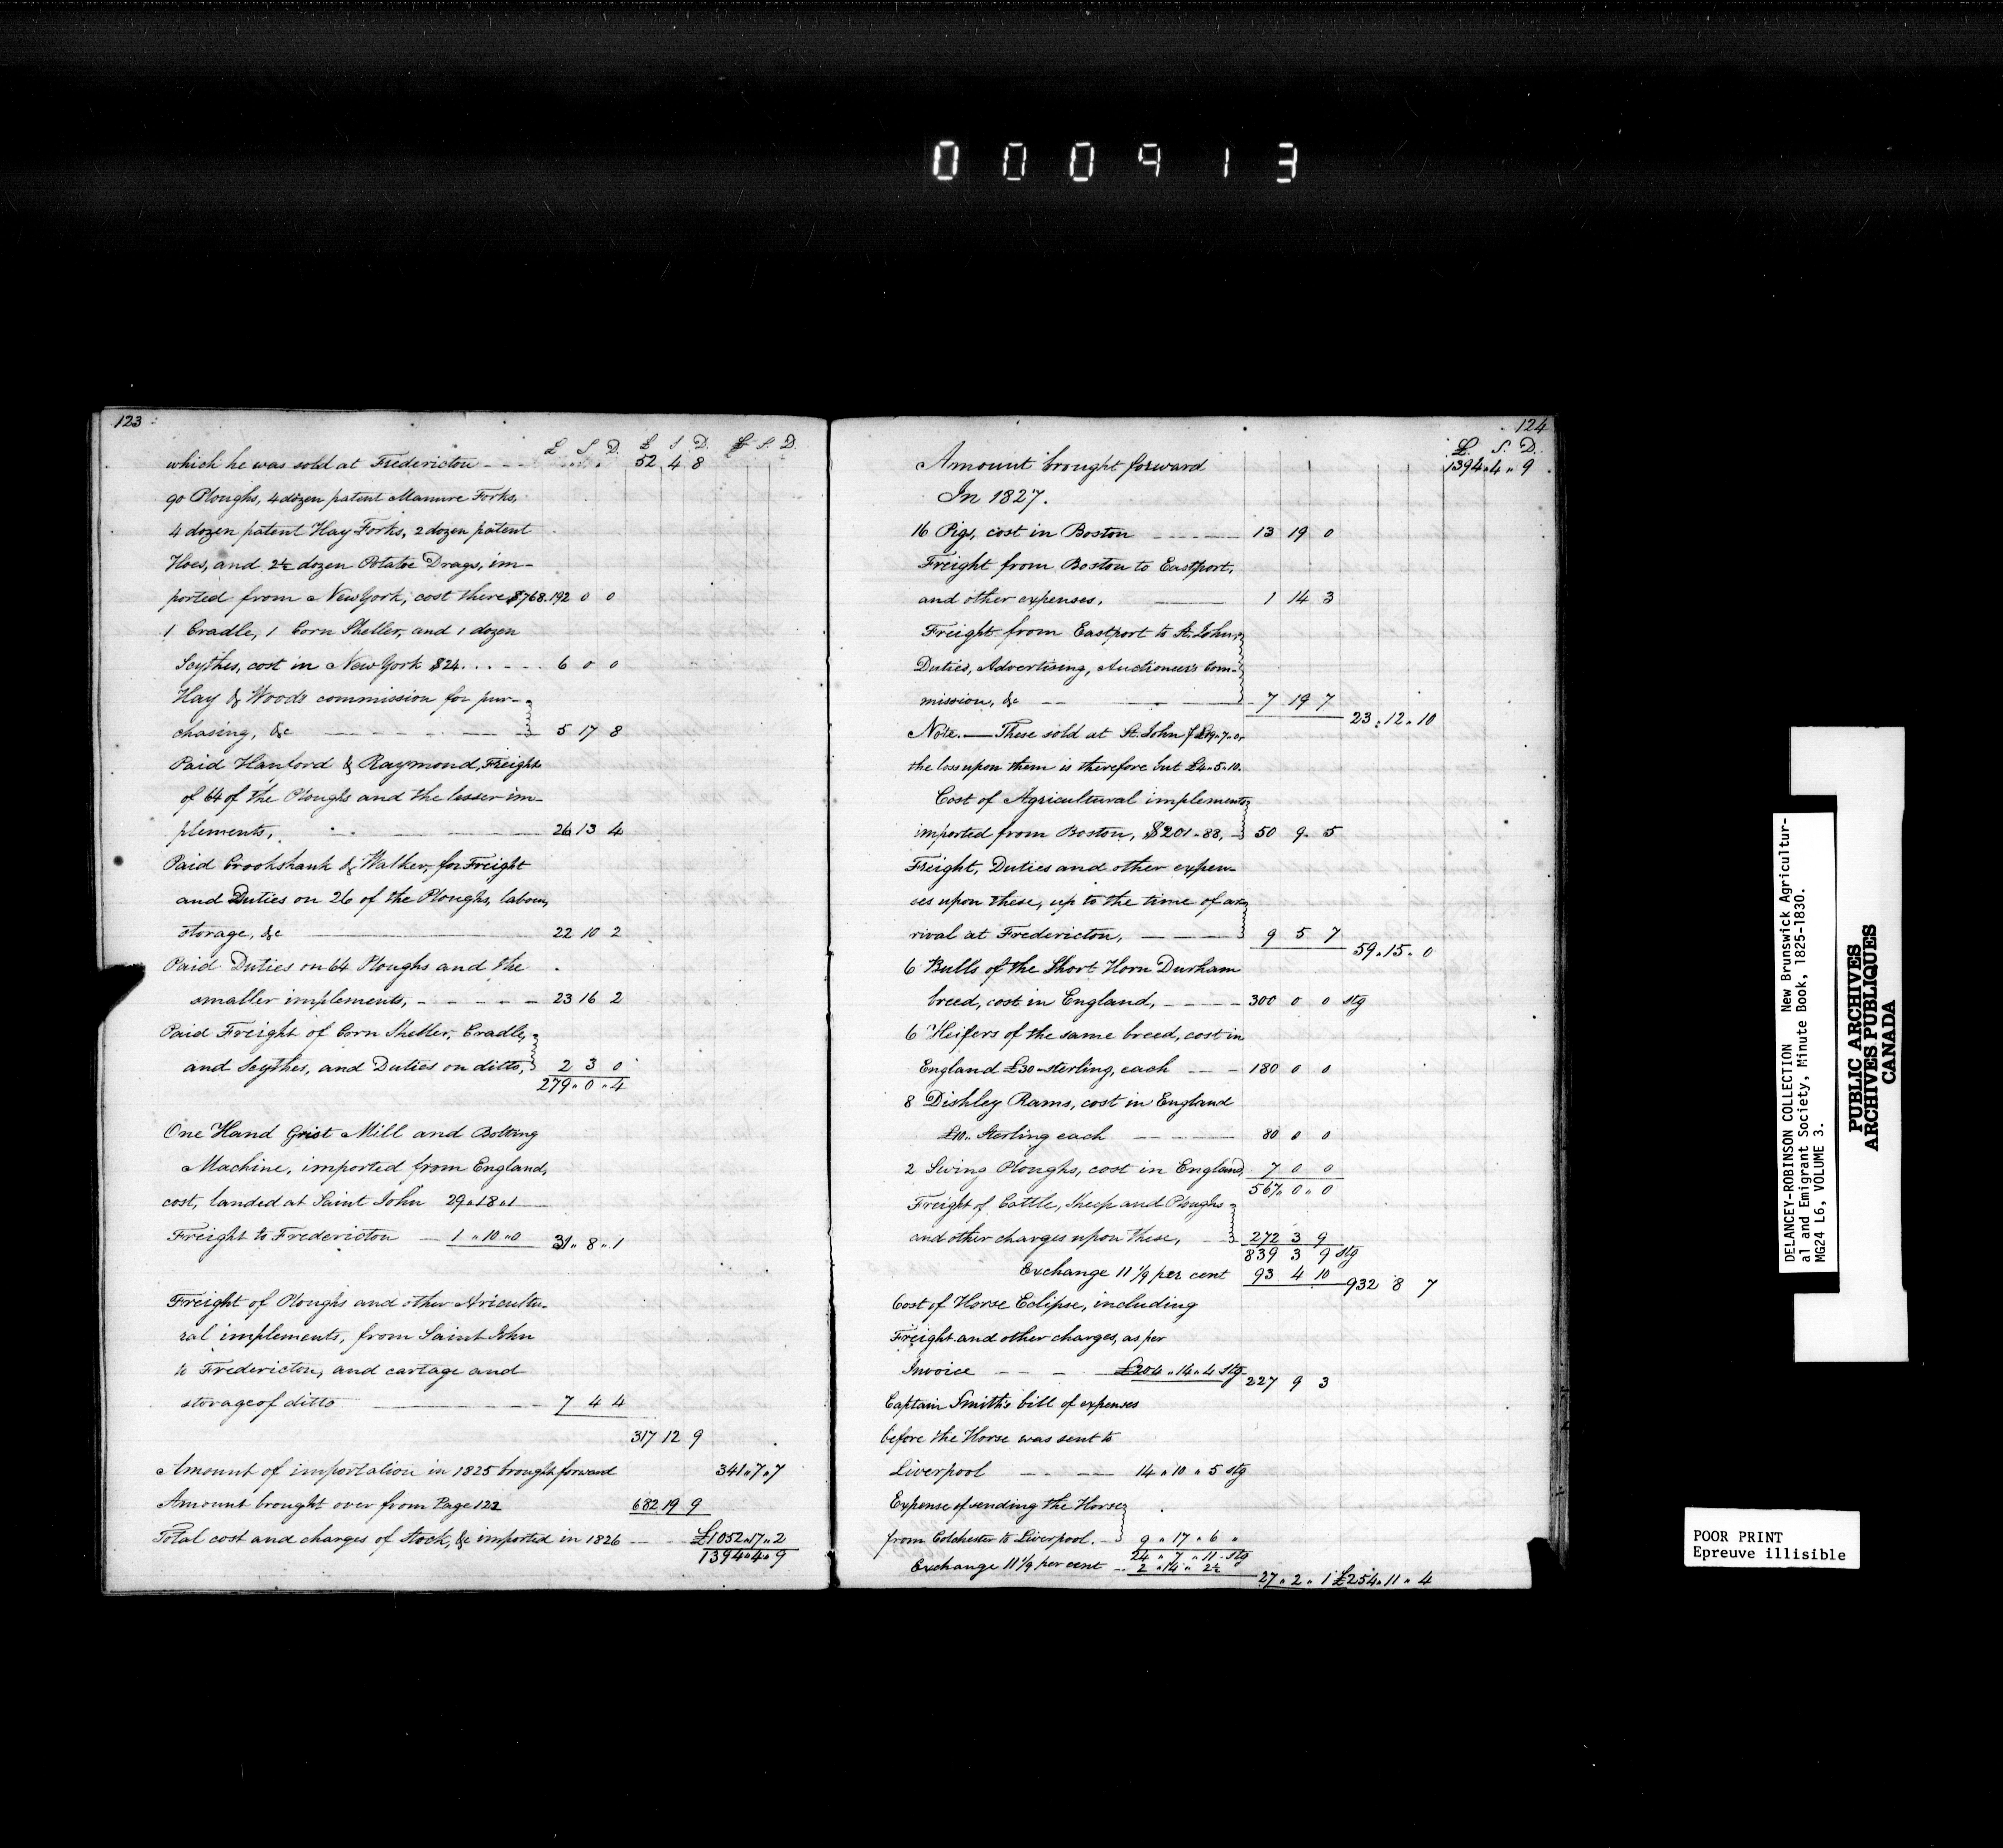 000913
123
£ S. D. £ S D. £ S. D.
which he was sold at Fredericton 52 4 8
90 Ploughs, 4 dozen patent Manure Forks,
4 dozen patent Hay Forks, 2 dozen patent
Hoes, and 2½ dozen Potatoe Drags, im-
ported from New York, cost there $768. 192 0 0
1 Cradle, 1 Corn Sheller, and 1 dozen
Scythes, cost in New York $24. 6 0 0
Hay & Woods commission for pur-
chasing, &c 5 17 8
Paid Hanford & Raymond, Freight
of 64 of the Ploughs and the lesser im-
plements, 26 13 4
Paid Crookshank & Walker, for Freight
and Duties on 26 of the Ploughs, labour,
storage, &c 22 10 2
Paid Duties on 64 Ploughs and the
smaller implements, 23 16 2
Paid Freight of Corn Sheller, Cradle,
and Scythes, and Duties on ditto, 2 3 0
279 " 0 " 4
One Hand Grist Mill and Bolting
Machine, imported from England,
cost, landed at Saint John 29 " 18 " 1
Freight to Fredericton 1 " 10 " 0 31 " 8 " 1
Freight of Ploughs and other Aricultu-
ral implements, from Saint John
to Fredericton, and cartage and
storage of ditto 7 4 4
317 12 9
Amount of importation in 1825 brought forward 341 " 7 " 7
Amount brought over from Page 122 682 19 9
Total cost and charges of Stock, &c imported in 1826 £1052 " 17 " 2
1394 " 4 " 9
124
£ S. D.
Amount brought forward 1394 " 4 " 9
In 1827.
16 Pigs, cost in Boston 13 19 0
Freight from Boston to Eastport,
and other expenses. 1 14 3
Freight from Eastport to St. John,
Duties, Advertising, Auctioneer's Com-
mission, &c 7 19 7
23 " 12 " 10
Note. — These sold at St. John f £19 " 7 " 0,
the loss upon them is therefore but £4 " 5 " 10.
Cost of Agricultural implements
imported from Boston, $201 " 88, 50 9 5
Freight, Duties and other expen-
ces upon these, up to the time of ar-
rival at Fredericton, 9 5 7
59 " 15 " 0
6 Bulls of the Short Horn Durham
breed, cost in England, 300 0 0 stg
6 Heifers of the same breed, cost in
England £30 " sterling, each 180 0 0
8 Dishley Rams, cost in England
£10 " Sterling each 80 0 0
2 Swing Ploughs, cost in England, 7 0 0
567 " 0 " 0
Freight of Cattle, Sheep and Ploughs
and other charges upon these, 272 3 9
839 3 9 stg
Exchange 11 1/9 per cent 93 4 10 932 8 7
Cost of Horse Eclipse, including
Freight and other charges, as per
Invoice £204 " 14 " 4 stg 227 9 3
Captain Smith's bill of expenses
before the Horse was sent to
Liverpool 14 " 10 " 5 stg
Expense of sending the Horse
from Colchester to Liverpool. 9 " 17 " 6 "
24 " 7 " 11 " stg
Exchange 11 1/9 per cent 2 " 14 " 2½
27 " 2 " 1 £254 " 11 " 4
DELANCEY-ROBINSON COLLECTION New Brunswick Agricultur-
al and Emigrant Society, Minute Book, 1825-1830.
MG24 L6, VOLUME 3.
PUBLIC ARCHIVES
ARCHIVES PUBLIQUES
CANADA
POOR PRINT
Epreuve illisible